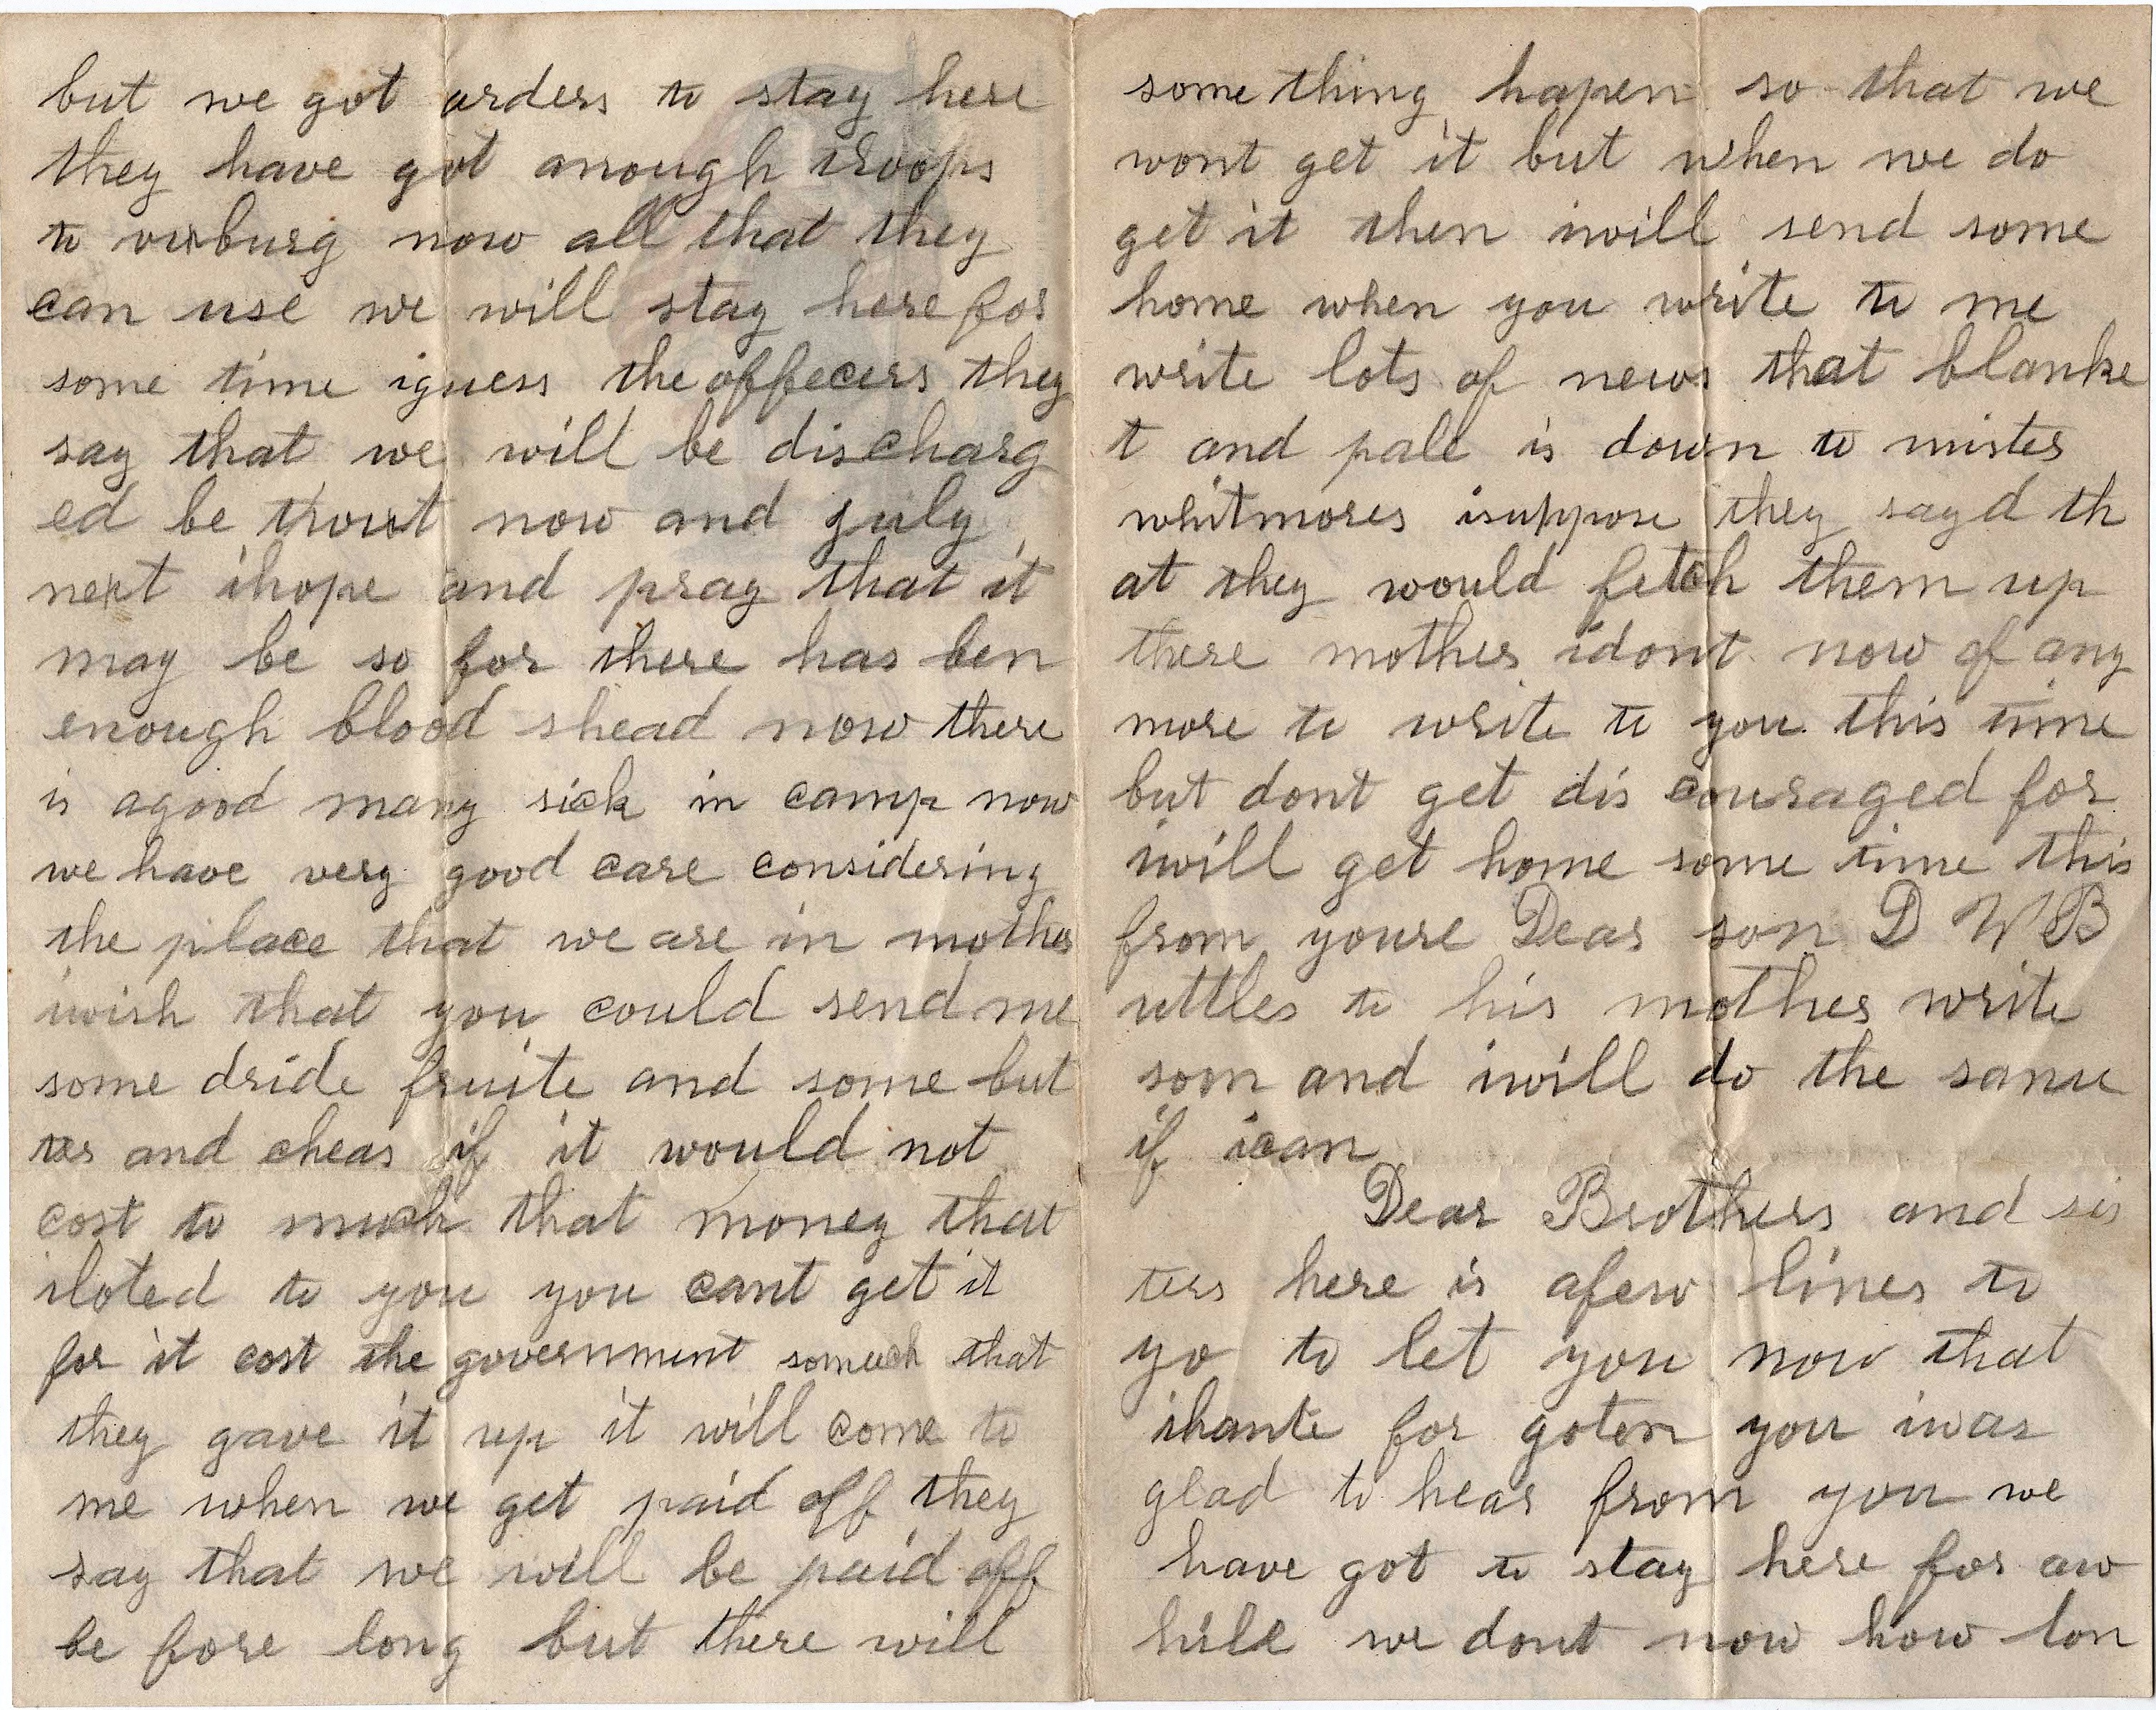 but we got orders to stay here
they have got anough troops
to vixburg now all that they
can use we will stay here for
some time iguess the offecers they
say that we will be discharg
ed be twixt now and july
next ihope and pray that it
may be so for there has ben
enough blood shead now there
is agood many sick in camp now
we have very good care considering
the place that we are in mother
iwish that you could send me
some dride fruite and some but
ter and cheas if it would not
cost to much that money that
iloted to you you cant get it
for it cost the government somuch that
they gave it up it will come to
me when we get paid off they
say that we will be paid off
be fore long but there will
some thing hapen so that we
wont get it but when we do
get it then iwill send some
home when you write to me
write lots of news that blanke
t and pall is down to mister
whitmores isuppose they sayd th
at they would fetch them up
there mother idont now of any
more to write to you this time
but dont get dis couraged for
iwill get home some time this
from youre Dear son D W B
uttles to his mother write
som and iwill do the same
if ican
Dear Brothers and sis
ters here is afew lines to
yo to let you now that
ihante for goten you iwas
glad to hear from you we
have got to stay here for aw
hile we dont now how lon